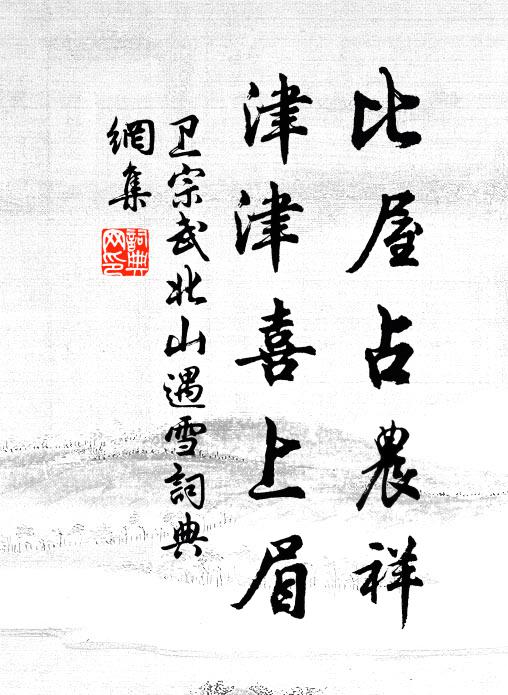 比屋占農祥
津津喜上眉
卫宗武北山遇雪詞典
網集
詞典網印